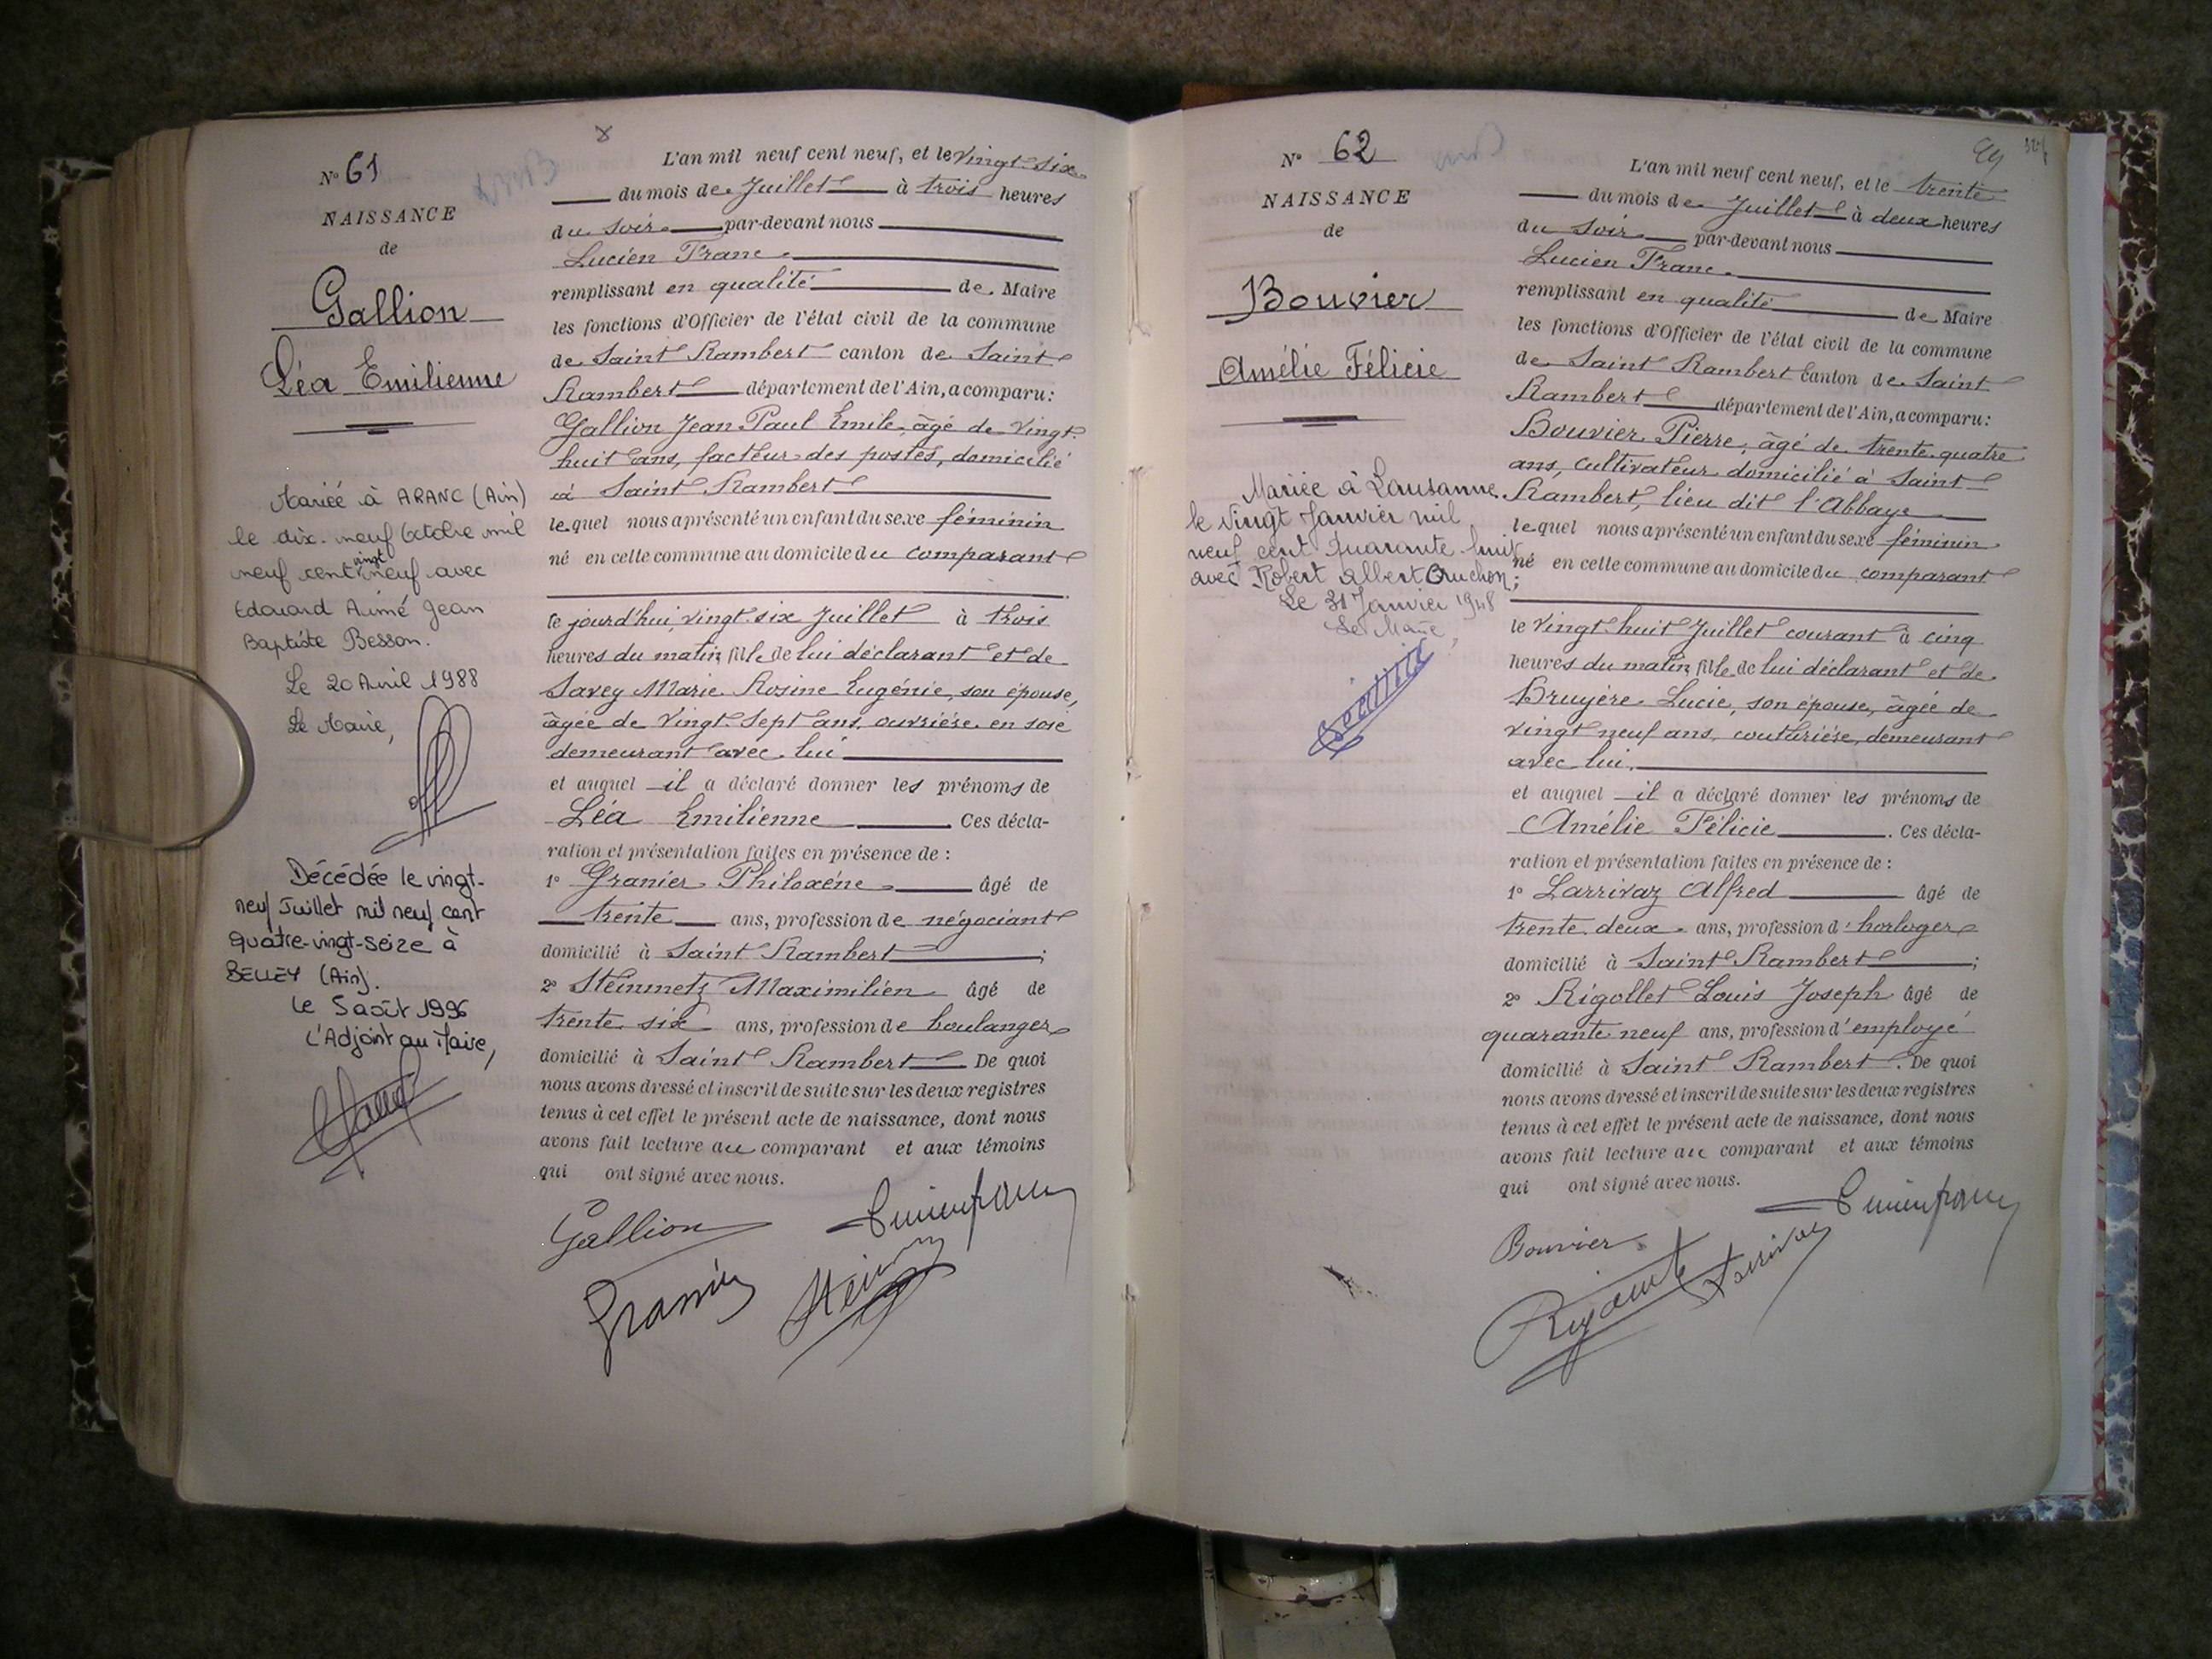 N° 61
NAISSANCE
de
Gallion
Léa Emilienne
Mariée à ARANC (Ain)
le dix-neuf Octobre mil
neuf cent vingt neuf avec
Edouard Aimé Jean
Baptiste Besson.
Le 20 Avril 1988
Le Maire,
Décédée le vingt-
neuf Juillet mil neuf cent
quatre-vingt-seize à
BELLEY (Ain).
Le 5 août 1996
L'Adjoint au Maire,
L'an mil neuf cent neuf, et le vingt-six
du mois de Juillet à trois heures
du soir par-devant nous
Lucien Franc
remplissant en qualité de Maire
les fonctions d'Officier de l'état civil de la commune
de Saint Rambert canton de Saint
Rambert département de l'Ain, a comparu:
Gallion Jean Paul Emile, âgé de vingt-
huit ans, facteur des postes, domicilié
à Saint Rambert
lequel nous a présenté un enfant du sexe féminin
né en cette commune au domicile du comparant
ce jourd'hui, vingt-six Juillet à trois
heures du matin, fille de lui déclarant et de
Savey Marie Rosine Eugénie, son épouse,
âgée de vingt-sept ans, ouvrière en soie
demeurant avec lui
et auquel il a déclaré donner les prénoms de
Léa Emilienne Ces décla-
ration et présentation faites en présence de :
1° Granier Philoxène âgé de
trente ans, profession de négociant
domicilié à Saint Rambert ;
2° Steinmetz Maximilien âgé de
trente six ans, profession de boulanger
domicilié à Saint Rambert De quoi
nous avons dressé et inscrit de suite sur les deux registres
tenus à cet effet le présent acte de naissance, dont nous
avons fait lecture au comparant et aux témoins
qui ont signé avec nous.
Gallion
Granier
N° 62
NAISSANCE
de
Bouvier
Amélie Félicie
Mariée à Lausanne
le vingt Janvier mil
neuf cent quarante-huit
avec Robert Albert Cruchon;
Le 31 Janvier 1948
Le Maire,
L'an mil neuf cent neuf, et le trente
du mois de Juillet à deux heures
du soir par-devant nous
Lucien Franc
remplissant en qualité de Maire
les fonctions d'Officier de l'état civil de la commune
de Saint Rambert canton de Saint
Rambert département de l'Ain, a comparu:
Bouvier Pierre, âgé de trente-quatre
ans, cultivateur domicilié à Saint
Rambert, lieu dit l'Abbaye
lequel nous a présenté un enfant du sexe féminin
né en cette commune au domicile du comparant
le vingt-huit Juillet courant à cinq
heures du matin, fille de lui déclarant et de
Bruyère Lucie, son épouse, âgée de
vingt neuf ans, couturière, demeurant
avec lui.
et auquel il a déclaré donner les prénoms de
Amélie Félicie . Ces décla-
ration et présentation faites en présence de :
1° Larrivaz Alfred âgé de
trente deux ans, profession d'horloger
domicilié à Saint Rambert ;
2° Rigollet Louis Joseph âgé de
quarante neuf ans, profession d'employé
domicilié à Saint Rambert. De quoi
nous avons dressé et inscrit de suite sur les deux registres
tenus à cet effet le présent acte de naissance, dont nous
avons fait lecture au comparant et aux témoins
qui ont signé avec nous.
Bouvier